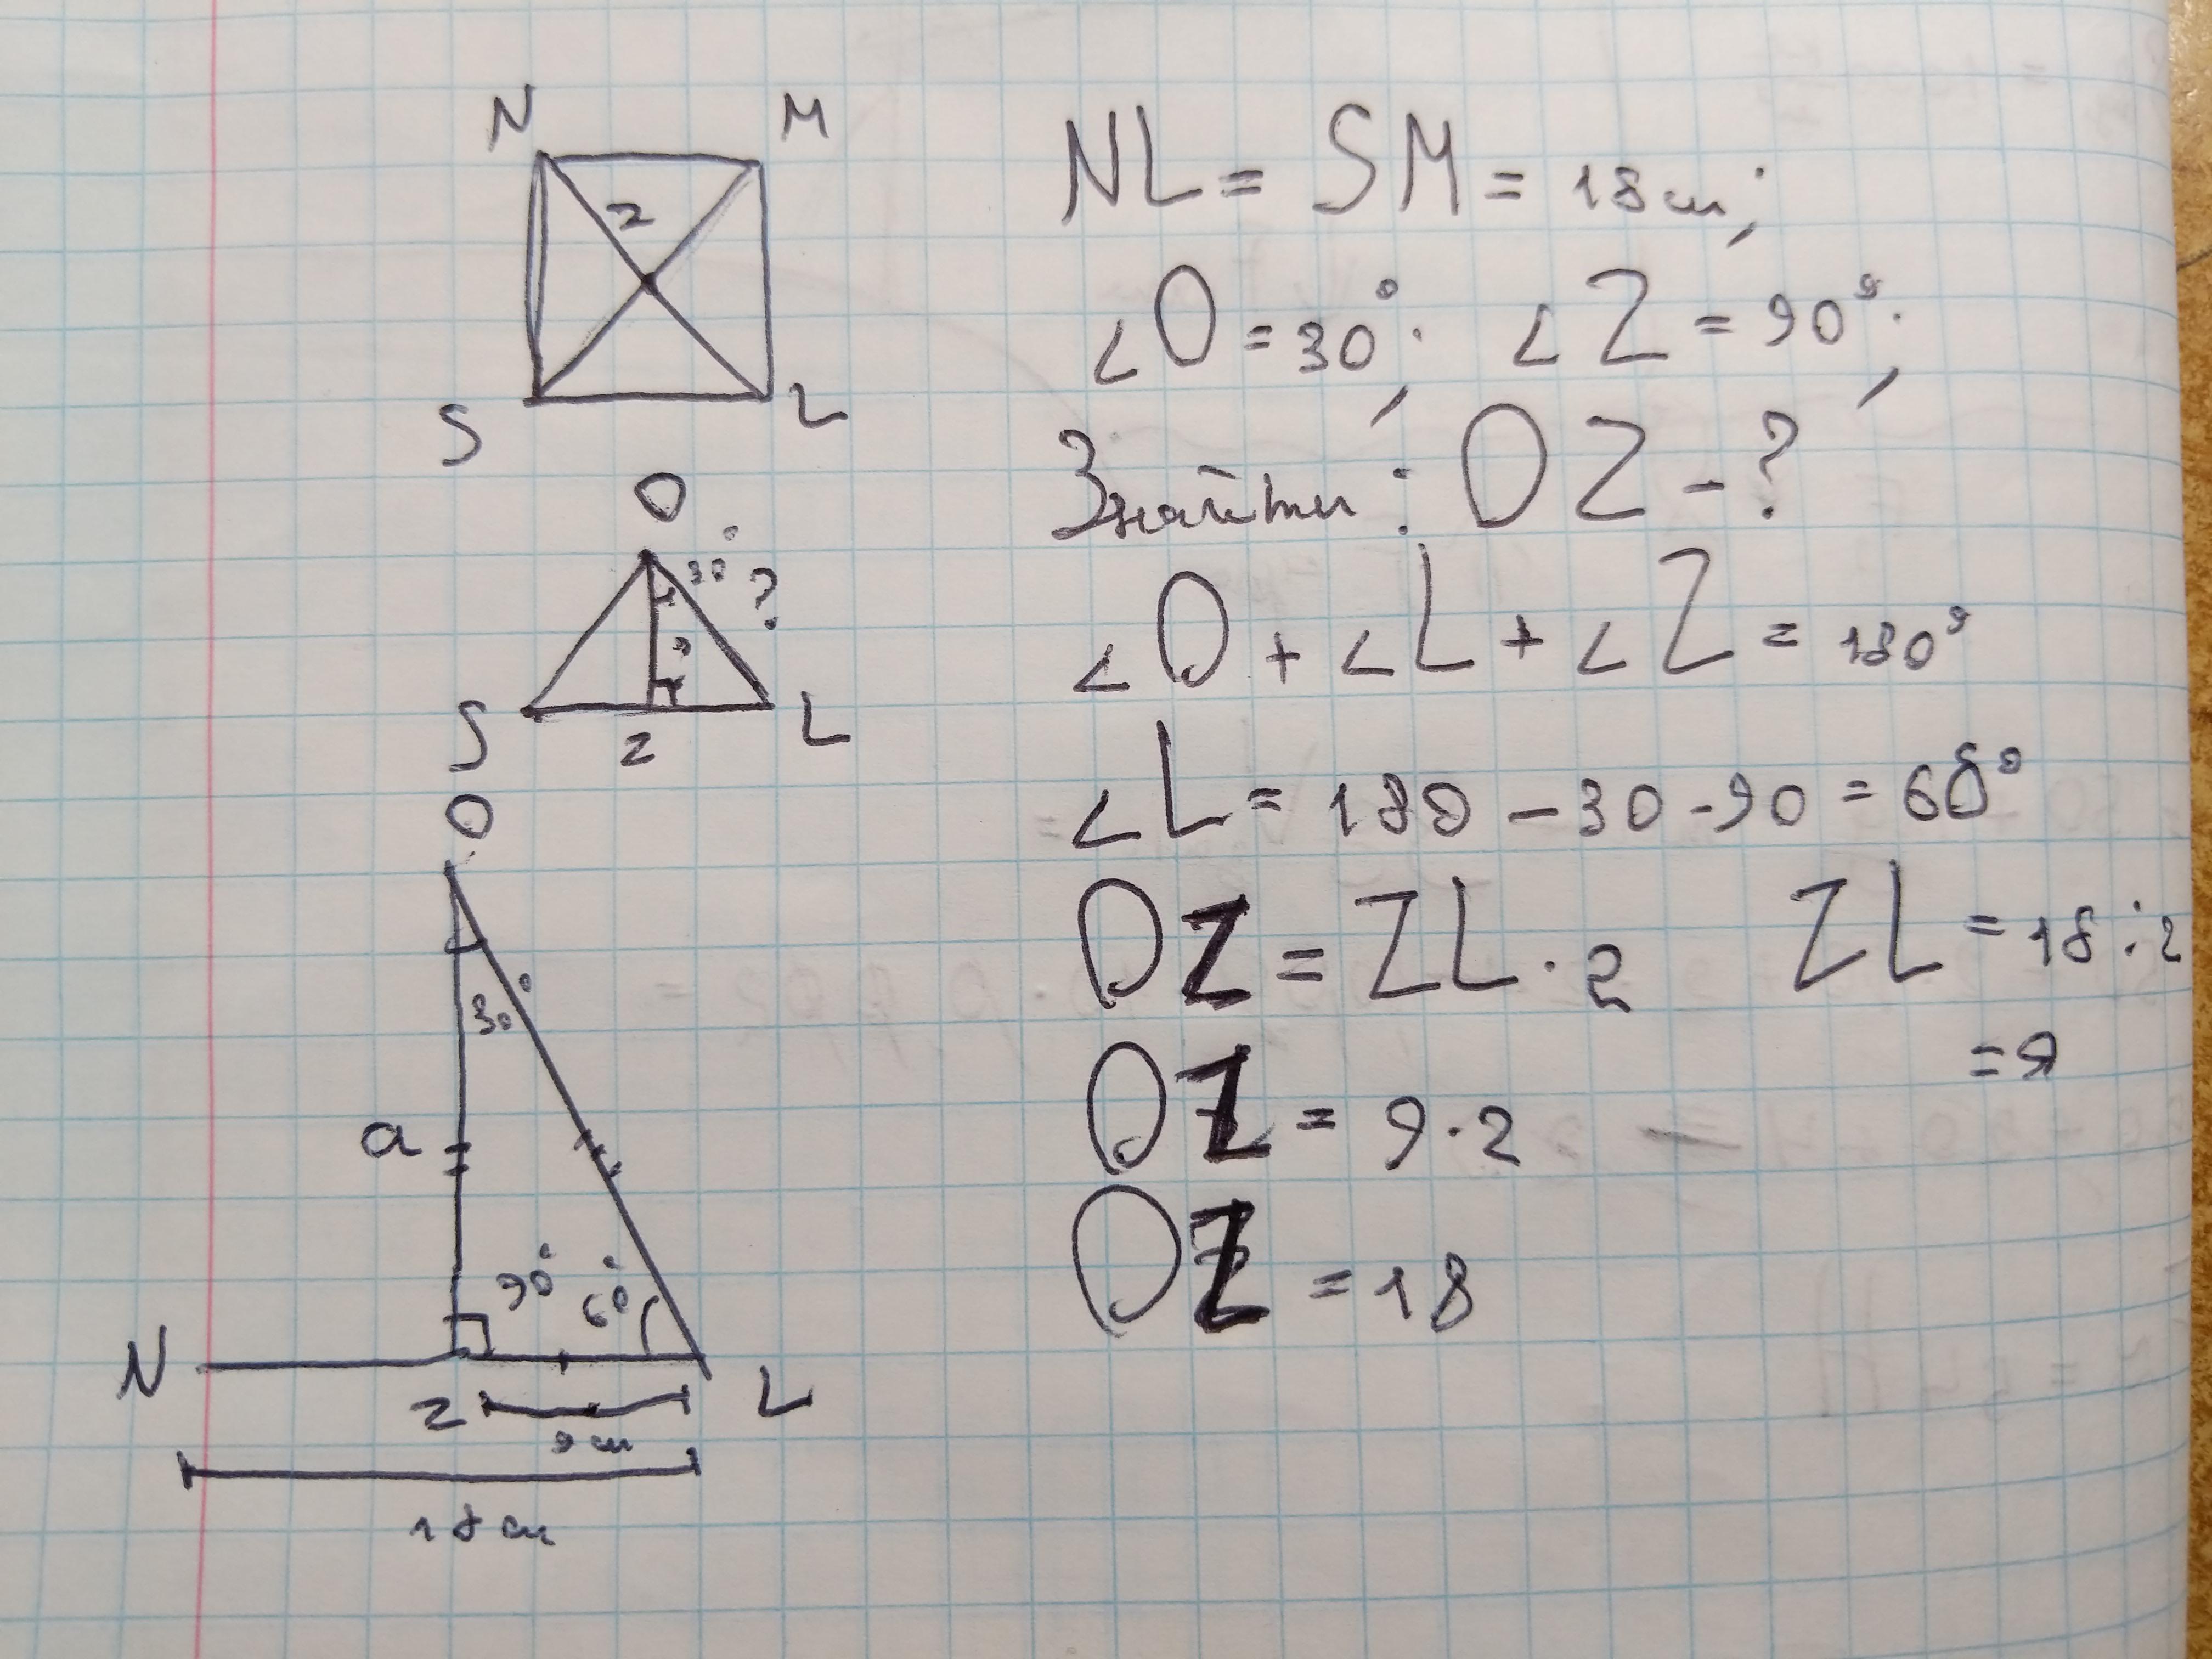 N M
Z
S L
O
30° ?
?
S Z L
O
30°
a
90° 60°
N Z L
9 см
18 см
NL = SM = 18 см;
∠O = 30°; ∠Z = 90°;
Знайти: OZ - ?
∠O + ∠L + ∠Z = 180°
∠L = 180 - 30 - 90 = 60°
OZ = ZL · 2 ZL = 18 : 2
= 9
OZ = 9 · 2
OZ = 18